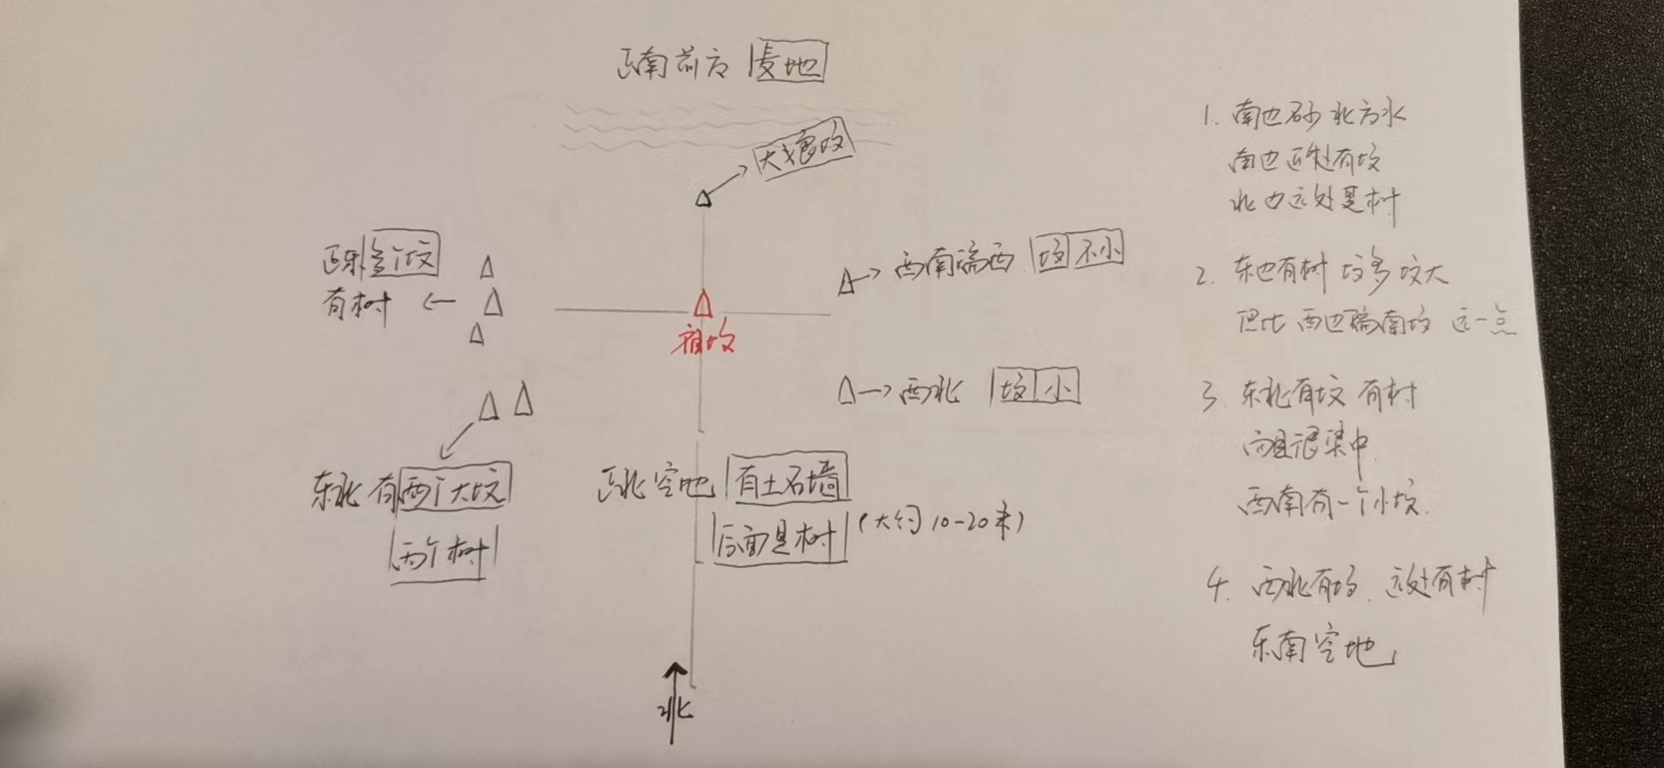 正南前方 麦地
大娘坟
正东 坟
有树
祖坟
西南偏西 坟 不小
西北 坟 小
东北有两个大坟
两个树
正北空地 有土石墙
后面是树 (大约10-20米)
北
1. 南边砂 北方水
南边近处有坟
北边远处是树
2. 东边有树 坟多 坟大
但比西边偏南坟 远一点
3. 东北有坟 有树
而且很集中
西南有一个小坟.
4. 西北有坟. 远处有树
东南空地